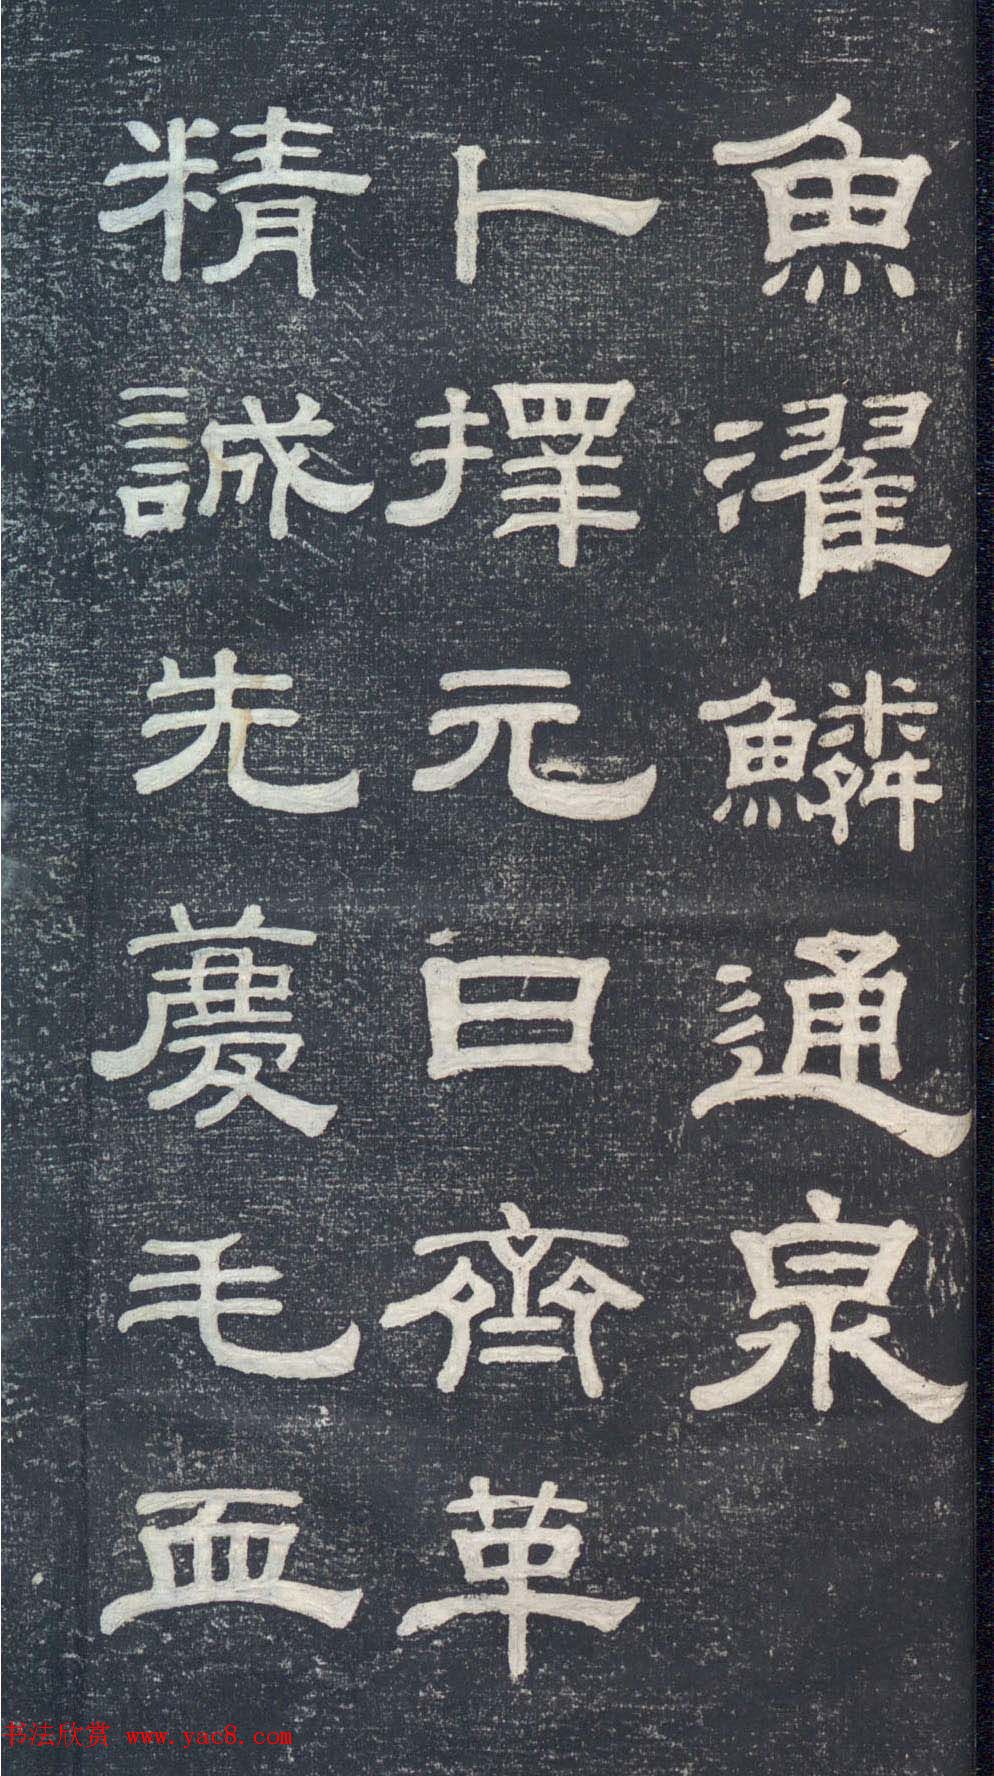 魚濯鱗通泉
卜擇元日齊革
精誠先慶毛血
书法欣赏 www.yac8.com